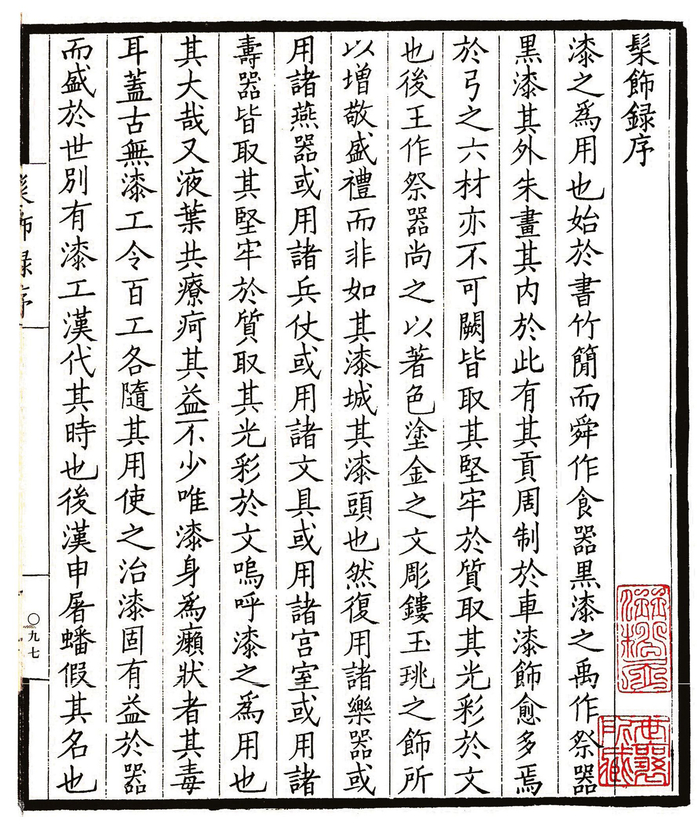 髹飾録序
漆之爲用也始於書竹簡而舜作食器黑漆之禹作祭器
黑漆其外朱畫其内於此有其貢周制於車漆飾愈多焉
於弓之六材亦不可闕皆取其堅牢於質取其光彩於文
也後王作祭器尚之以著色塗金之文彫鏤玉珧之飾所
以增敬盛禮而非如其漆城其漆頭也然復用諸樂器或
用諸燕器或用諸兵仗或用諸文具或用諸宫室或用諸
壽器皆取其堅牢於質取其光彩於文嗚呼漆之爲用也
其大哉又液葉共療疴其益不少唯漆身爲癩狀者其毒
耳蓋古無漆工令百工各隨其用使之治漆固有益於器
而盛於世別有漆工漢代其時也後漢申屠蟠假其名也
髹飾録序
〇九七